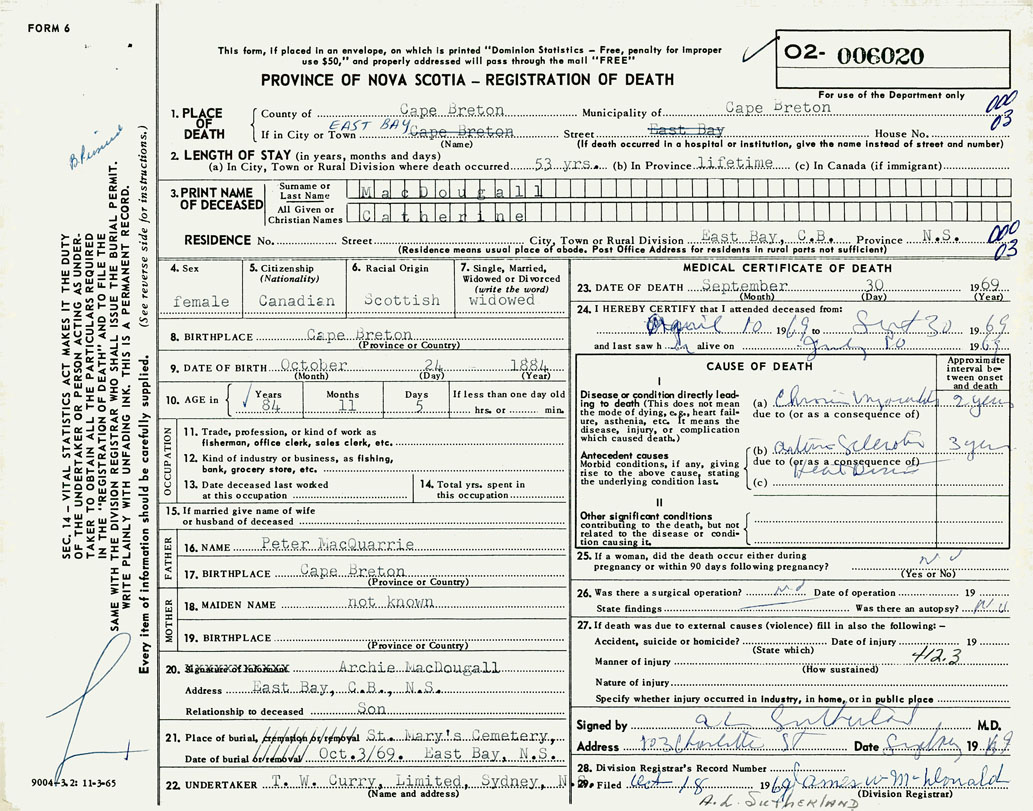 FORM 6
This form, if placed in an envelope, on which is printed "Dominion Statistics – Free, penalty for improper
use $50," and properly addressed will pass through the mail "FREE"
PROVINCE OF NOVA SCOTIA – REGISTRATION OF DEATH
O2- 006020
For use of the Department only
000
03
1. PLACE OF DEATH
County of Cape Breton Municipality of Cape Breton
If in City or Town EAST BAY Cape Breton Street East Bay House No.
(Name) (If death occurred in a hospital or institution, give the name instead of street and number)
2. LENGTH OF STAY (in years, months and days)
(a) In City, Town or Rural Division where death occurred 53 yrs. (b) In Province lifetime (c) In Canada (if immigrant)
3. PRINT NAME OF DECEASED
Surname or Last Name MacDougall
All Given or Christian Names Catherine
RESIDENCE No. Street City, Town or Rural Division East Bay, C.B. Province N.S.
(Residence means usual place of abode. Post Office Address for residents in rural parts not sufficient)
000
03
4. Sex
female
5. Citizenship
(Nationality)
Canadian
6. Racial Origin
Scottish
7. Single, Married,
Widowed or Divorced
(write the word)
widowed
8. BIRTHPLACE Cape Breton
(Province or Country)
9. DATE OF BIRTH October 24 1884
(Month) (Day) (Year)
10. AGE in Years Months Days If less than one day old
84 11 5 hrs. or min.
OCCUPATION
11. Trade, profession, or kind of work as
fisherman, office clerk, sales clerk, etc.
12. Kind of industry or business, as fishing,
bank, grocery store, etc.
13. Date deceased last worked
at this occupation
14. Total yrs. spent in
this occupation
15. If married give name of wife
or husband of deceased
FATHER
16. NAME Peter MacQuarrie
17. BIRTHPLACE Cape Breton
(Province or Country)
MOTHER
18. MAIDEN NAME not known
19. BIRTHPLACE
(Province or Country)
20. Signature of Informant Archie MacDougall
Address East Bay, C.B., N.S.
Relationship to deceased Son
21. Place of burial, cremation or removal St. Mary's Cemetery,
Date of burial or removal Oct.3/69. East Bay, N.S.
22. UNDERTAKER T. W. Curry, Limited, Sydney, N.S.
(Name and address)
MEDICAL CERTIFICATE OF DEATH
23. DATE OF DEATH September 30 1969
(Month) (Day) (Year)
24. I HEREBY CERTIFY that I attended deceased from:
April 10 1969 to Sept 30 1969
and last saw her alive on 1969
CAUSE OF DEATH
Approximate
interval be-
tween onset
and death
I
Disease or condition directly lead-
ing to death (This does not mean
the mode of dying, e.g., heart fail-
ure, asthenia, etc. It means the
disease, injury, or complication
which caused death.)
(a) Chronic Myocarditis 2 years
due to (or as a consequence of)
Antecedent causes
Morbid conditions, if any, giving
rise to the above cause, stating
the underlying condition last.
(b) Arterio Sclerotic 3 years
due to (or as a consequence of)
Heart Disease
(c)
II
Other significant conditions
contributing to the death, but not
related to the disease or condi-
tion causing it.
25. If a woman, did the death occur either during
pregnancy or within 90 days following pregnancy? No
(Yes or No)
26. Was there a surgical operation? no Date of operation 19
State findings Was there an autopsy? No
27. If death was due to external causes (violence) fill in also the following: –
Accident, suicide or homicide? Date of injury 19
(State which)
412.3
Manner of injury
(How sustained)
Nature of injury
Specify whether injury occurred in industry, in home, or in public place
Signed by A L Sutherland M.D.
Address 203 Charlotte St Date Sydney 1969
28. Division Registrar's Record Number
29. Filed Oct 18 1969 James W McDonald
(Division Registrar)
A. L. SUTHERLAND
SEC. 14 – VITAL STATISTICS ACT MAKES IT THE DUTY
OF THE UNDERTAKER OR PERSON ACTING AS UNDER-
TAKER TO OBTAIN ALL THE PARTICULARS REQUIRED
IN THE "REGISTRATION OF DEATH" AND TO FILE THE
SAME WITH THE DIVISION REGISTRAR WHO SHALL ISSUE THE BURIAL PERMIT.
WRITE PLAINLY WITH UNFADING INK. THIS IS A PERMANENT RECORD.
Every item of information should be carefully supplied. (See reverse side for instructions.)
9004-3.2: 11-3-65